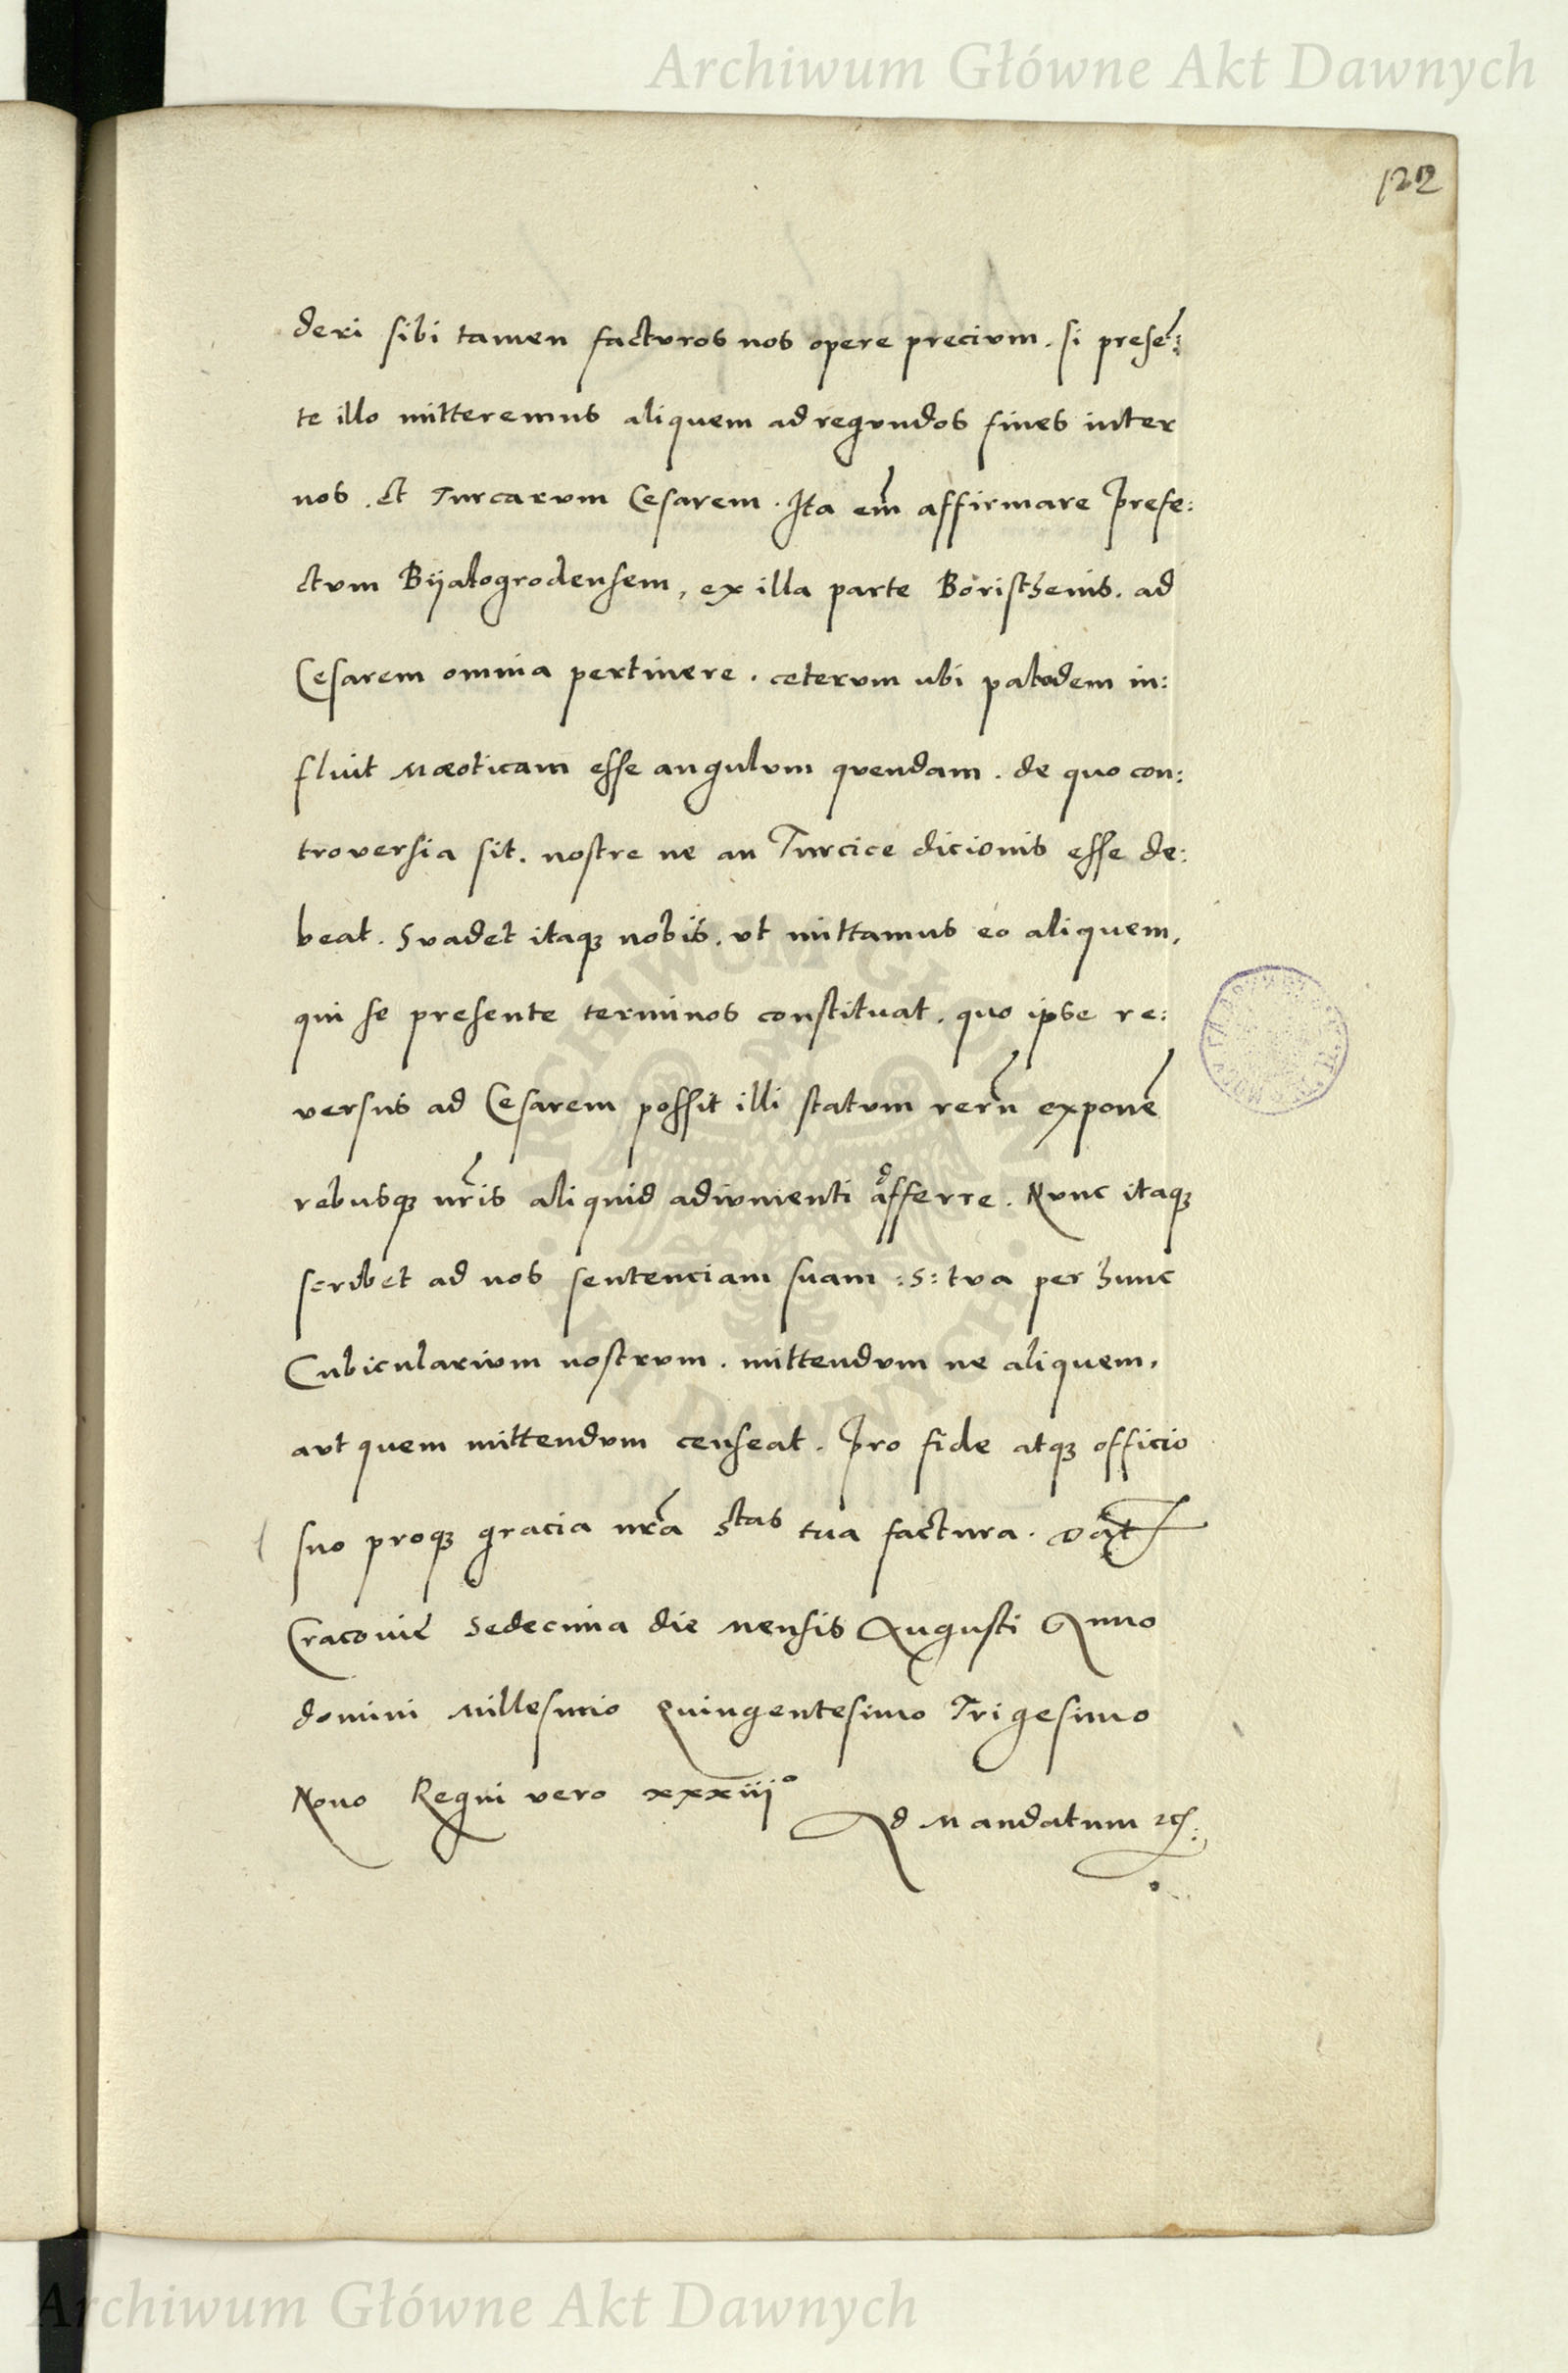 Archiwum Główne Akt Dawnych
122
deri sibi tamen facturos nos opere precium. si presẽ:
te illo mitteremus aliquem ad regundos fines inter
nos. et Turcarum Cesarem. Ita em̃ affirmare Prefe:
ctum Bijalogrodensem, ex illa parte Boristhenis. ad
Cesarem omnia pertinere. ceterum ubi paludem in:
fluit Mæoticam esse angulum quendam. de quo con:
troversia sit. nostre ne an Turcice dicionis esse de:
beat. Suadet itaqꝫ nobis. ut mittamus eo aliquem,
qui se presente terminos constituat. quo ipse re:
versus ad Cesarem possit illi statum rerũ exponẽ
rebusqꝫ nr̃is aliquid adiumenti afferre. Nunc itaqꝫ
scribet ad nos sentenciam suam :S: tua per hunc
Cubicularium nostrum. mittendum ne aliquem,
aut quem mittendum censeat. Pro fide atqꝫ officio
suo proqꝫ gracia nr̃a Stas tua factura. Dat̃
Cracovię Sedecima die Mensis Augusti Anno
domini Millesimo Quingentesimo Trigesimo
Nono Regni vero xxxiij°
Ad Mandatum
ARCHIWUM GŁÓWNE AKT DAWNYCH
Archiwum Główne Akt Dawnych